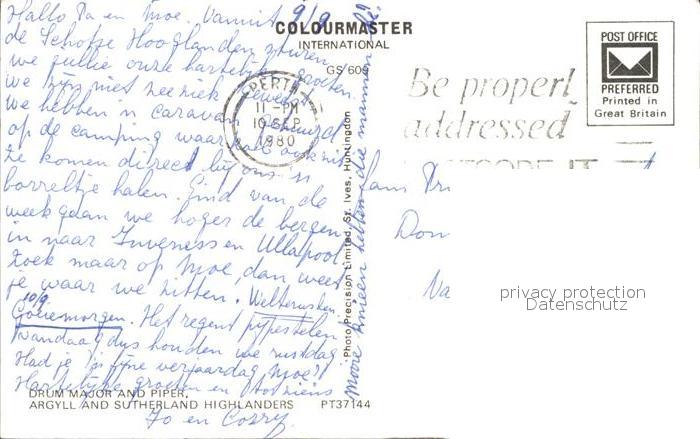 Hallo Pa en Moe. Vanuit 9/9
de Schotse Hooglanden sturen
we jullie onze hartelijke groeten
we zijn niet zeeziek geweest
we hebben 'n caravan gehuurd
op de camping waar
Ze komen direct bij ons 'n
borreltje halen. Eind van de
week gaan we hoger de bergen
in naar Inverness en Ullapool
zoek maar op Moe, dan weet
je waar we zitten. Welterusten.
10/9
Goeiemorgen. Het regent pijpestelen
vandaag dus houden we rustdag
Had je 'n fijne verjaardag, Moe?
Hartelijke groeten en tot ziens
Jo en Corry.
mooie knieën hebben die mannen hè!
COLOURMASTER
INTERNATIONAL
GS/609
PERTH
11-PM
10 SEP
1980
Be properl
addressed
POSTCODE IT
POST OFFICE
PREFERRED
Printed in
Great Britain
Photo Precision Limited, St. Ives, Huntingdon
Don
privacy protection
Datenschutz
DRUM MAJOR AND PIPER,
ARGYLL AND SUTHERLAND HIGHLANDERS PT37144